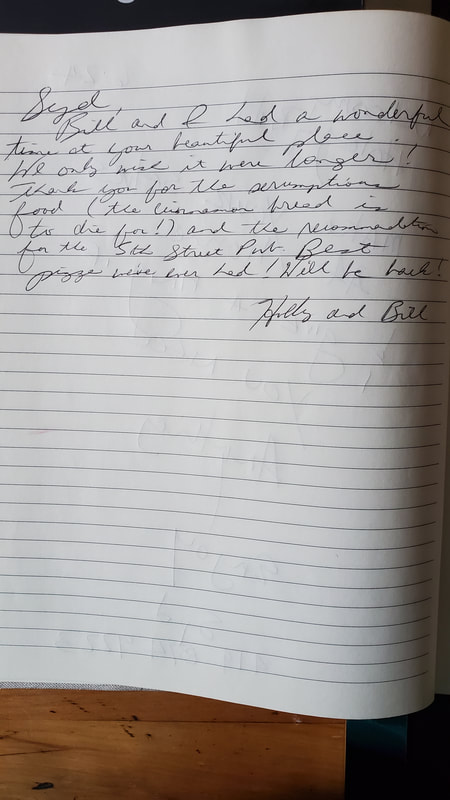 Syd,
Bill and I had a wonderful
time at your beautiful place.
We only wish it were longer!
Thank you for the scrumptious
food (the cinnamon bread is
to die for!) and the recommendation
for the 5th Street Pub. Best
pizza we've ever had! Will be back!
Holly and Bill